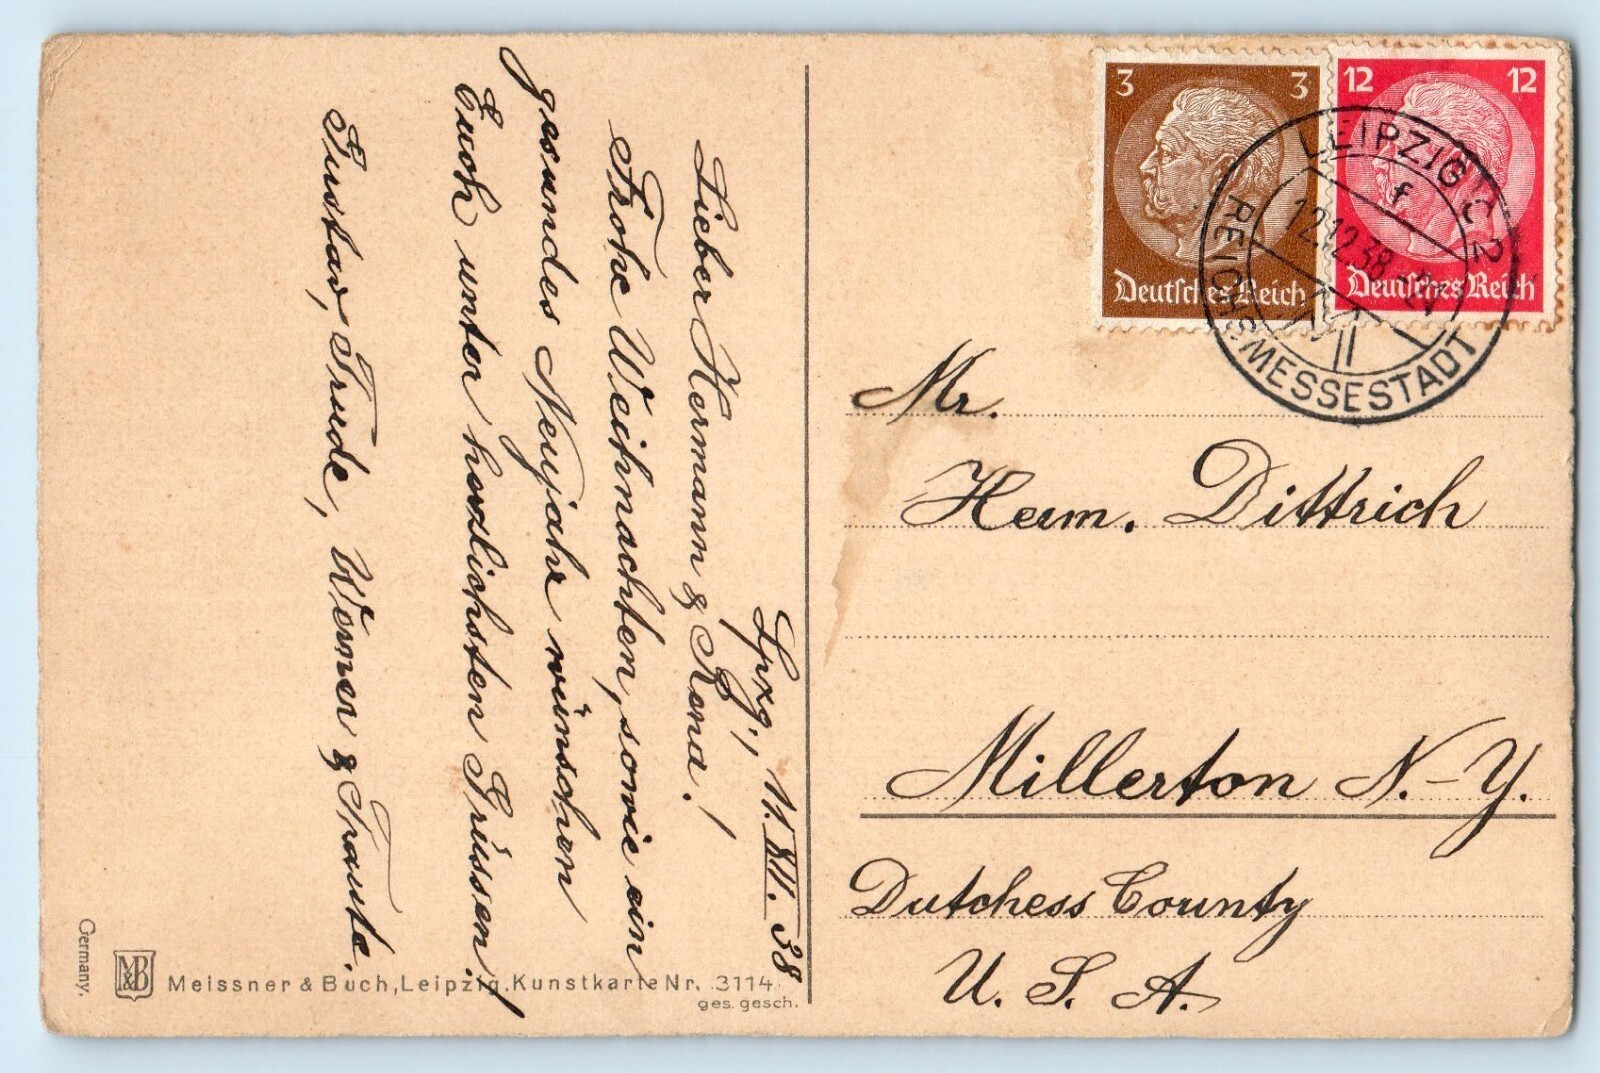 Lpzg., 11.XII.38
Lieber Hermann & Rona!
Frohe Weihnachten, sowie ein
gesundes Neujahr wünschen
Euch unter herzlichsten Grüssen!
Gustav, Trude, Werner & Traute.
3 3
Deutsches Reich
12 12
Deutsches Reich
LEIPZIG C2
f
12.12.38
REICHSMESSESTADT
Mr.
Herm. Dittrich
Millerton N.-Y.
Dutchess County
U. S. A.
Germany.
M&B
Meissner & Buch, Leipzig. Kunstkarte Nr. 3114
ges. gesch.